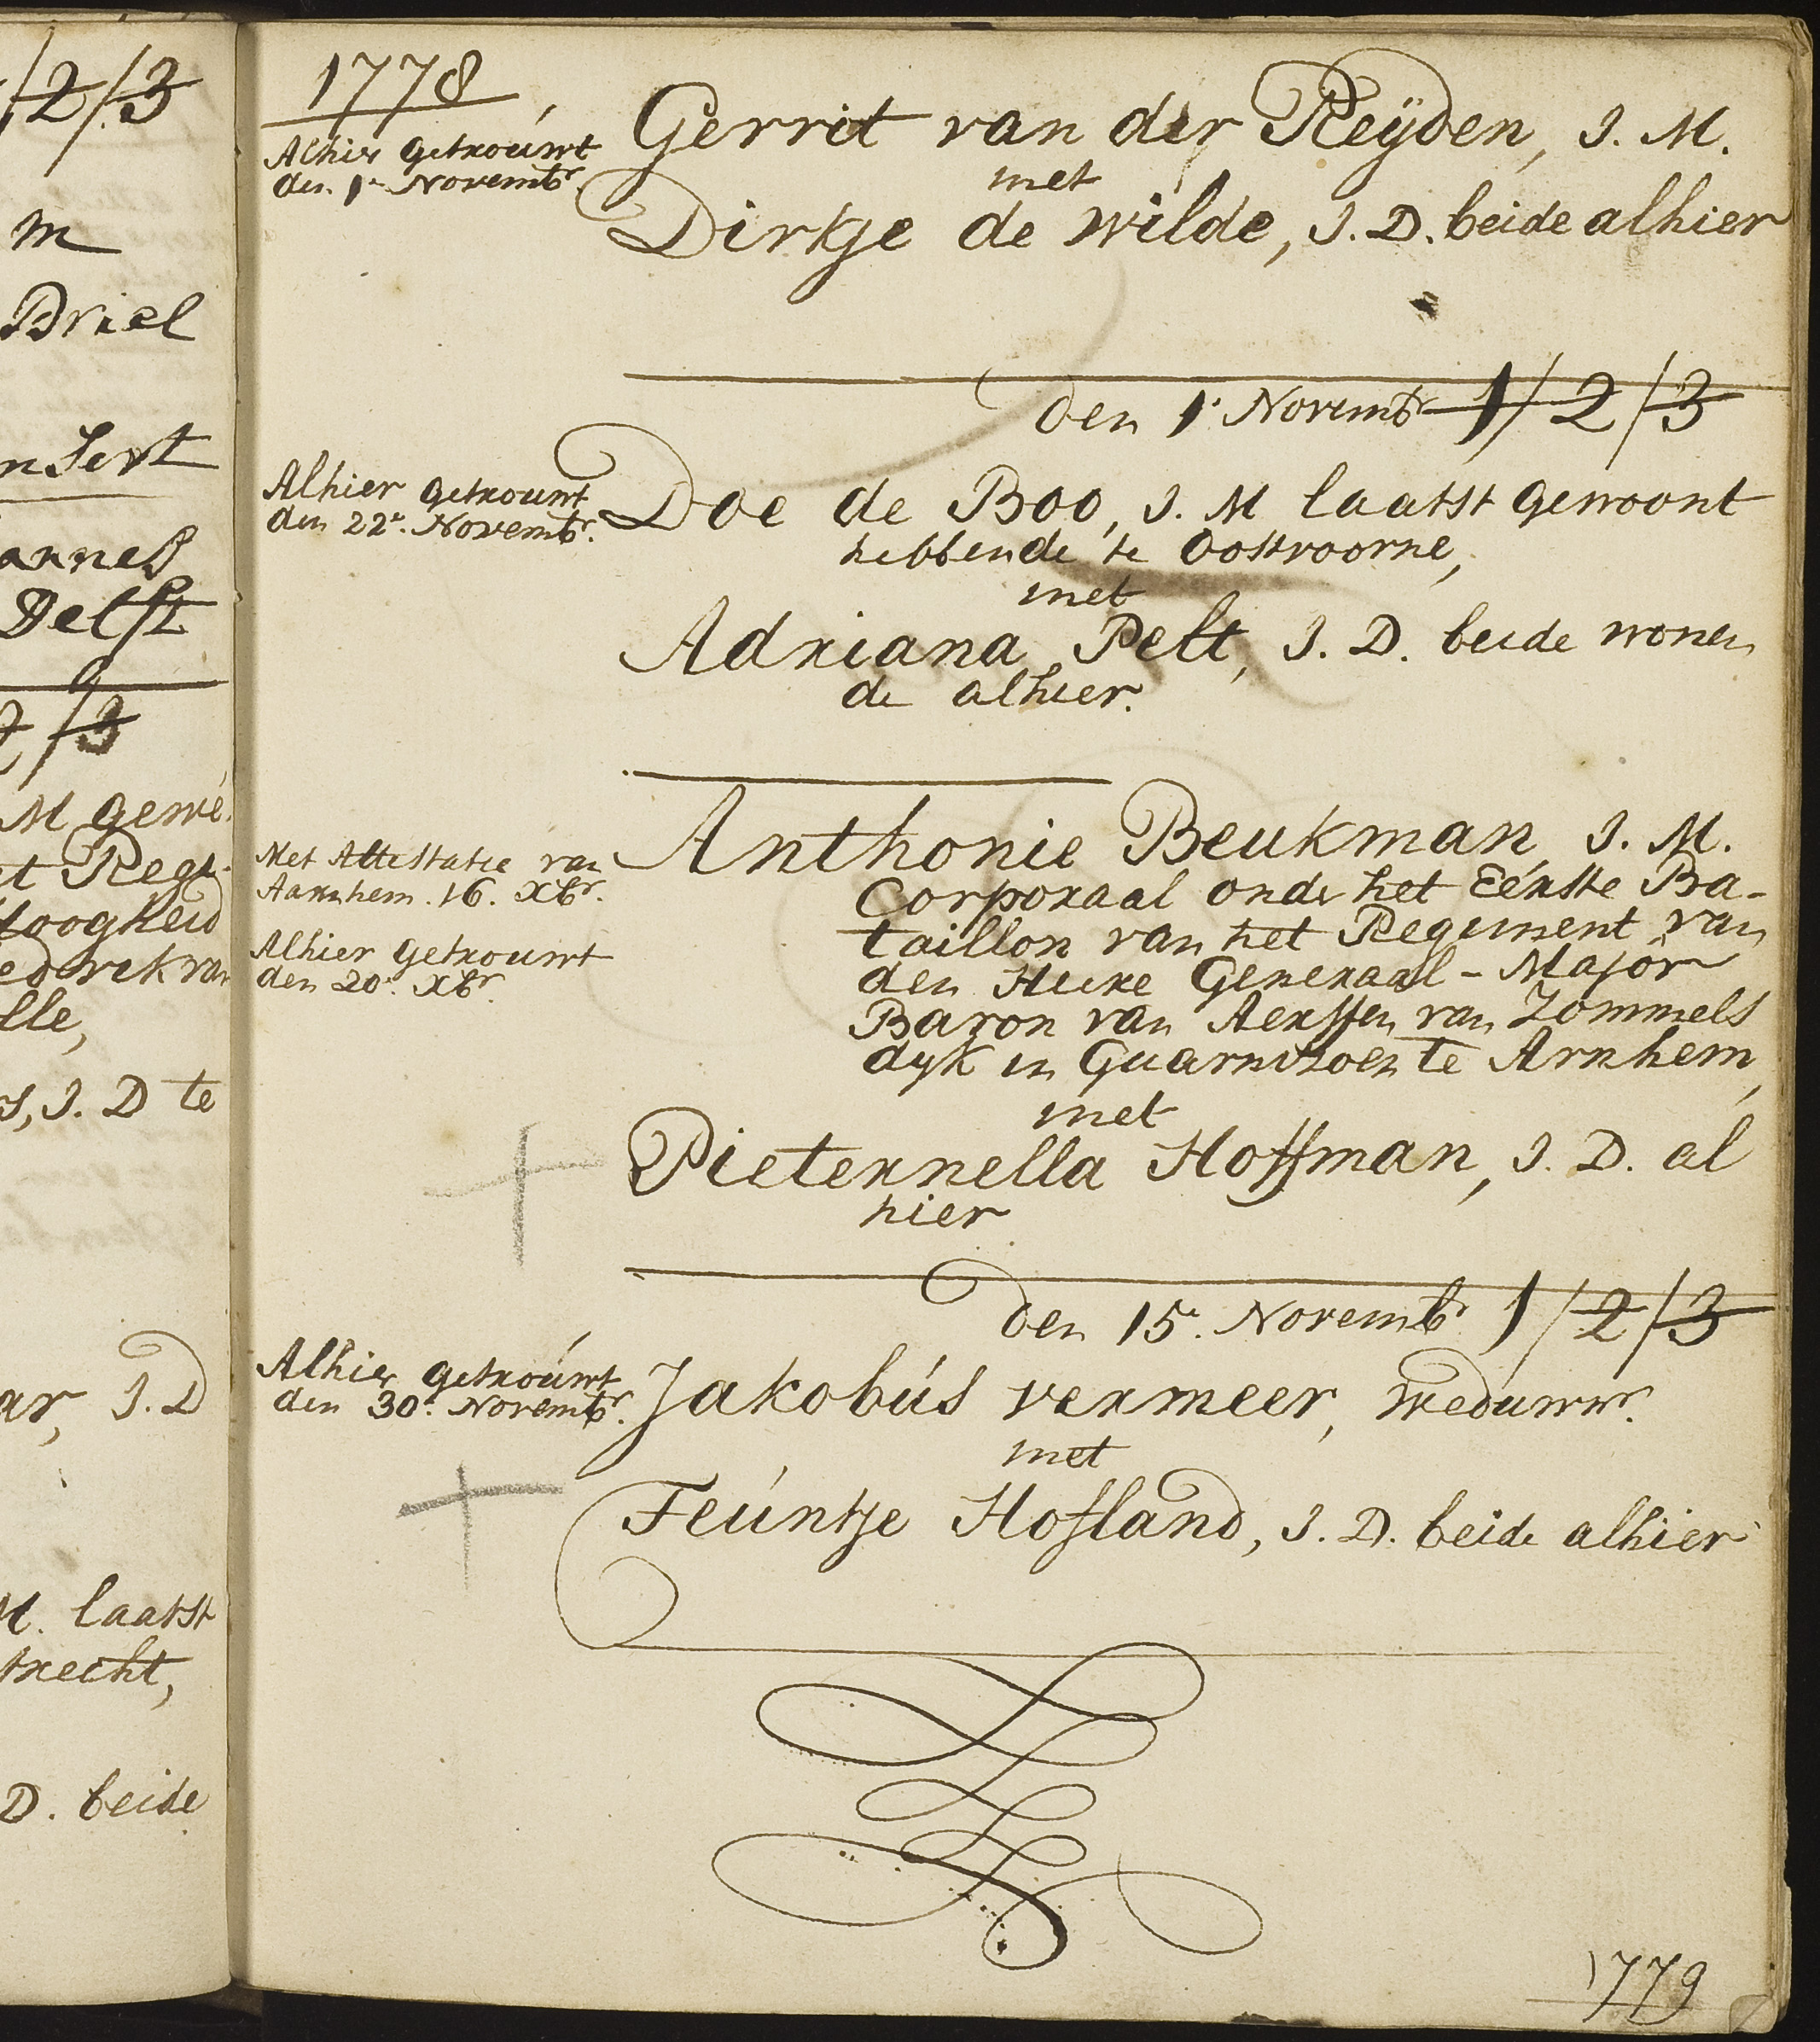 /2/3
m
Briel
nsert
annes
Delft
2/3
M gewe.
et Regt.
Hoogheid
edrik van
lle,
s, J. D te
ar, J. D
M. laatst
trecht,
D. beide
1778
Alhier getrouwt
den 1e Novembr.
Gerrit van der Reÿden, J. M.
met
Dirkje de Wilde, J. D. beide alhier
den 1e Novembr 1/2/3
Alhier getrouwt
den 22e. Novembr.
Doe de Boo, J. M laatst gewoont
hebbende te Oostvoorne,
met
Adriana Pelt, J. D. beide wonen
de alhier.
Met Attestatie van
Aarnhem. 16. Xbr.
Alhier getrouwt
den 20e. Xbr.
Anthonie Beukman, J. M.
Corporaal onder het Eérste Ba-
taillon van het Regiment van
den Heere Generaal-Major
Baron van Aerssen van Zommels
dyk in Guarnizoen te Arnhem,
met
Pieternella Hoffman, J. D. al
hier
den 15e. Novembr 1/2/3
Alhier getrouwt
den 30e. Novembr.
Jakobús Vermeer, Weduwr.
met
Feúntje Hofland, J. D. beide alhier
1779